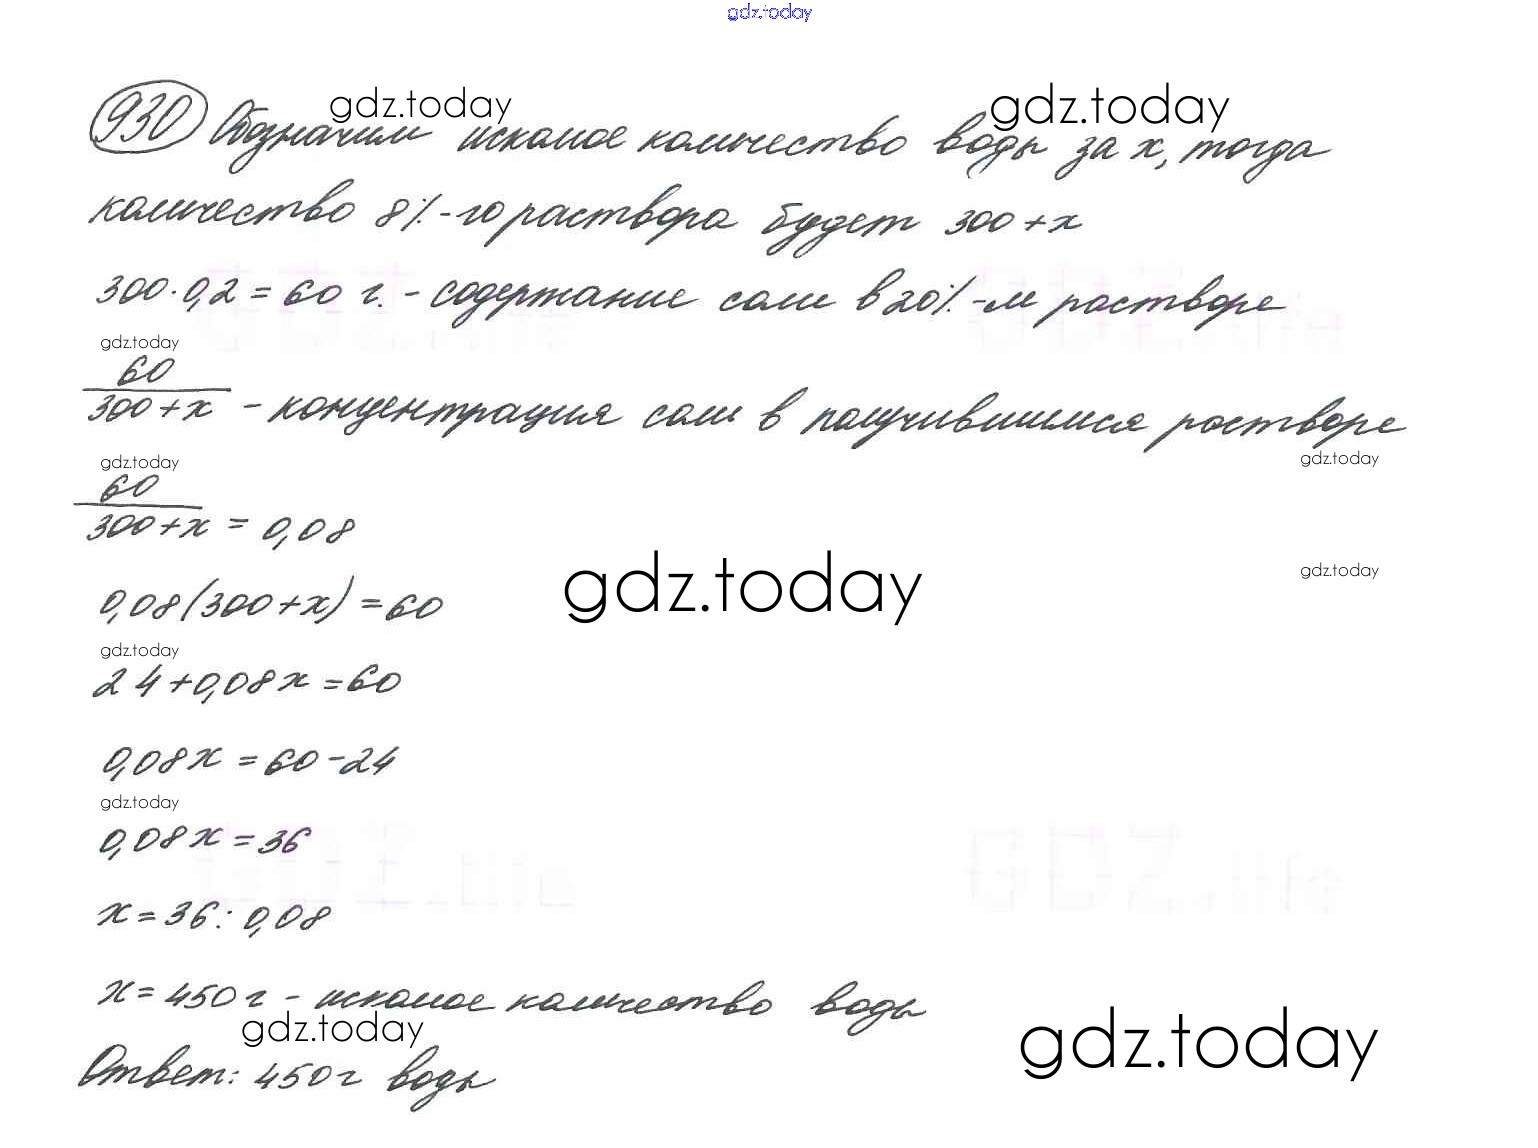 gdz.today
gdz.today gdz.today
930 Обозначим искомое количество воды за x, тогда
количество 8%-го раствора будет 300+x
300·0,2=60 г. - содержание соли в 20%-м растворе
gdz.today
60
300+x - концентрация соли в получившимся растворе
gdz.today gdz.today
60
300+x = 0,08
gdz.today gdz.today
0,08(300+x)=60
gdz.today
24+0,08x=60
0,08x=60-24
gdz.today
0,08x=36
GDZ.life GDZ.life
x=36:0,08
x=450 г - искомое количество воды
gdz.today gdz.today
Ответ: 450 г воды